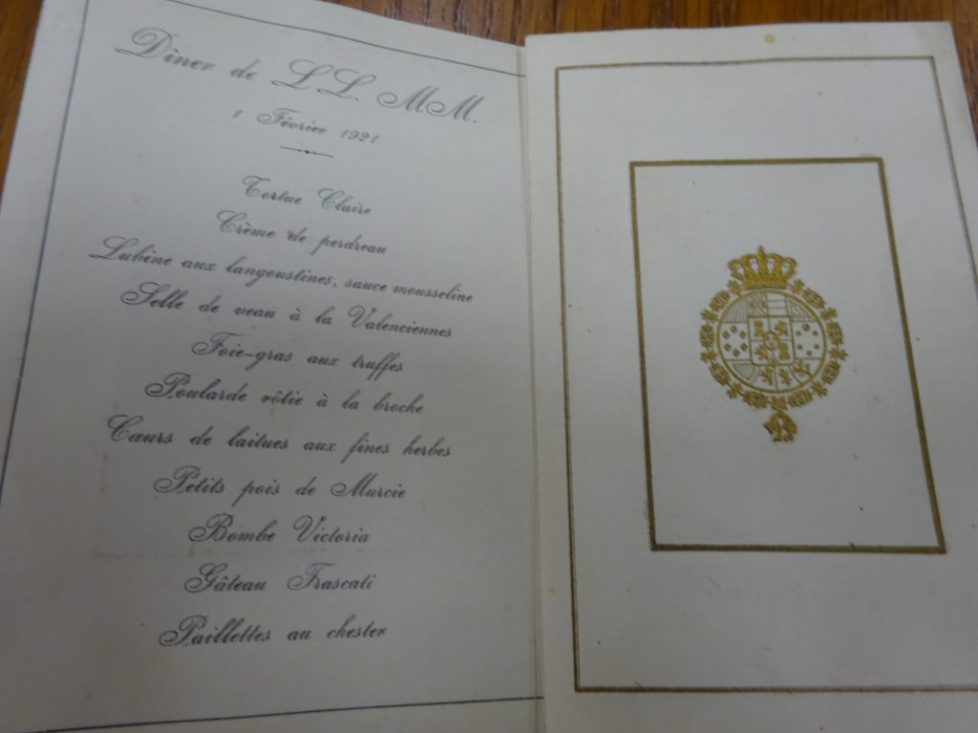 Dîner de LL. MM.
1 Février 1921
Tortue Claire
Crème de perdreau
Lubène aux langoustines, sauce mousseline
Selle de veau à la Valenciennes
Foie-gras aux truffes
Poularde rôtie à la broche
Cœurs de laitues aux fines herbes
Petits pois de Murcie
Bombe Victoria
Gâteau Frascati
Paillettes au chester